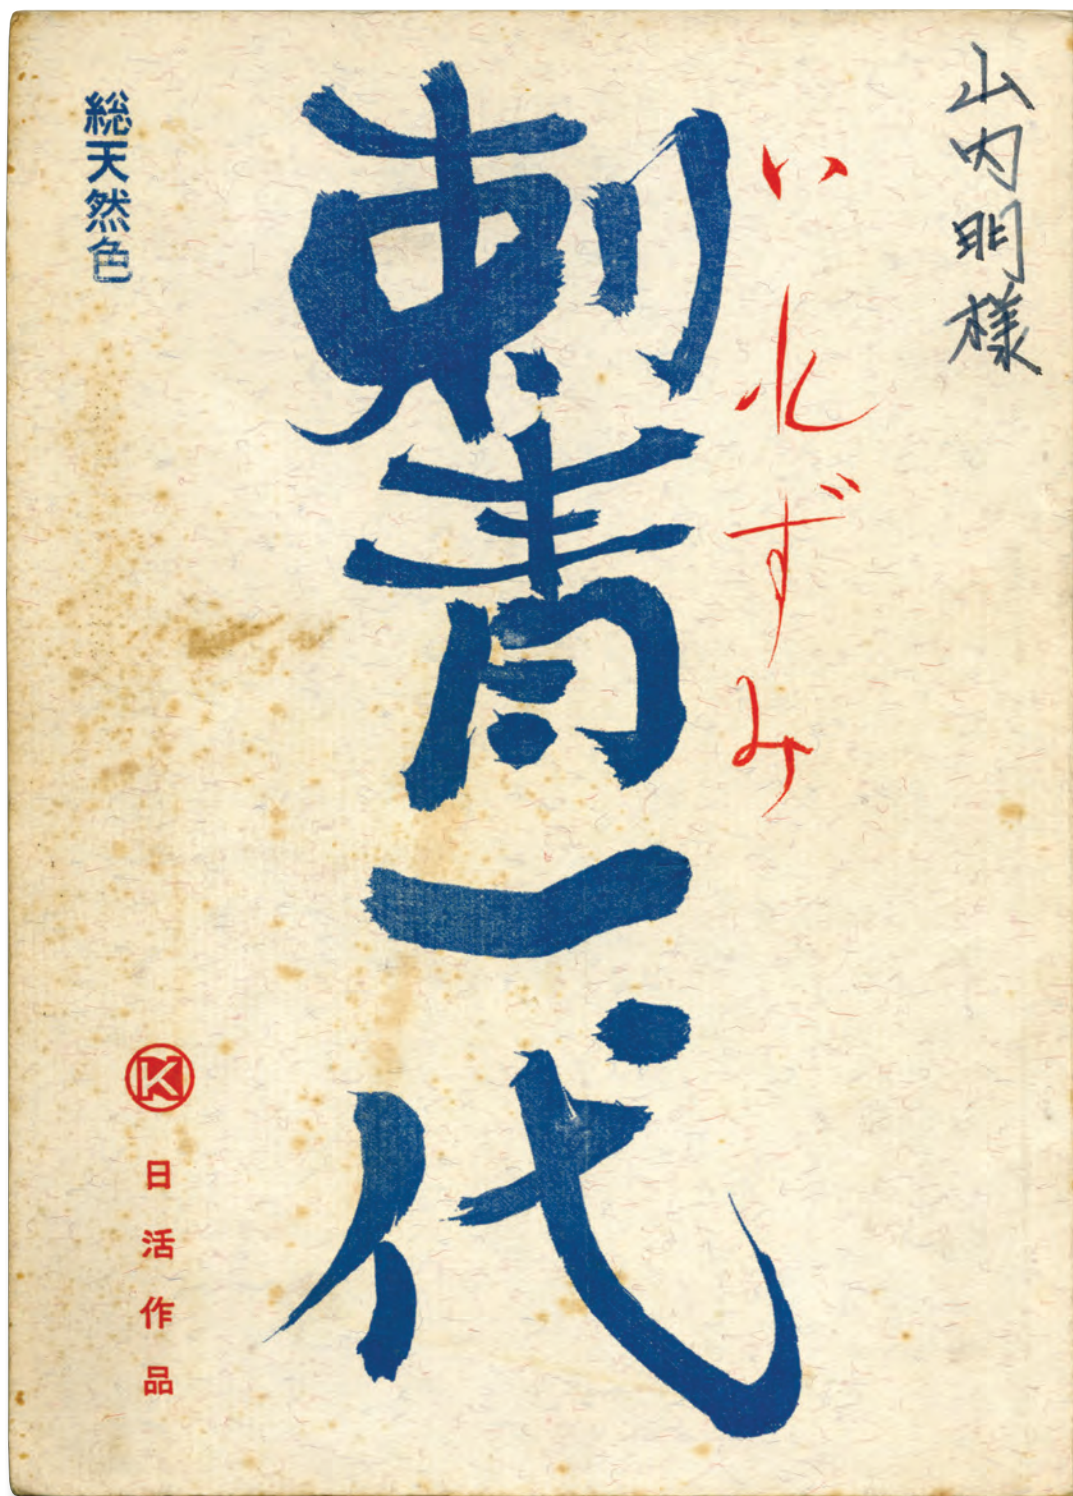 山内明様
いれずみ
刺青一代
総天然色
K
日活作品